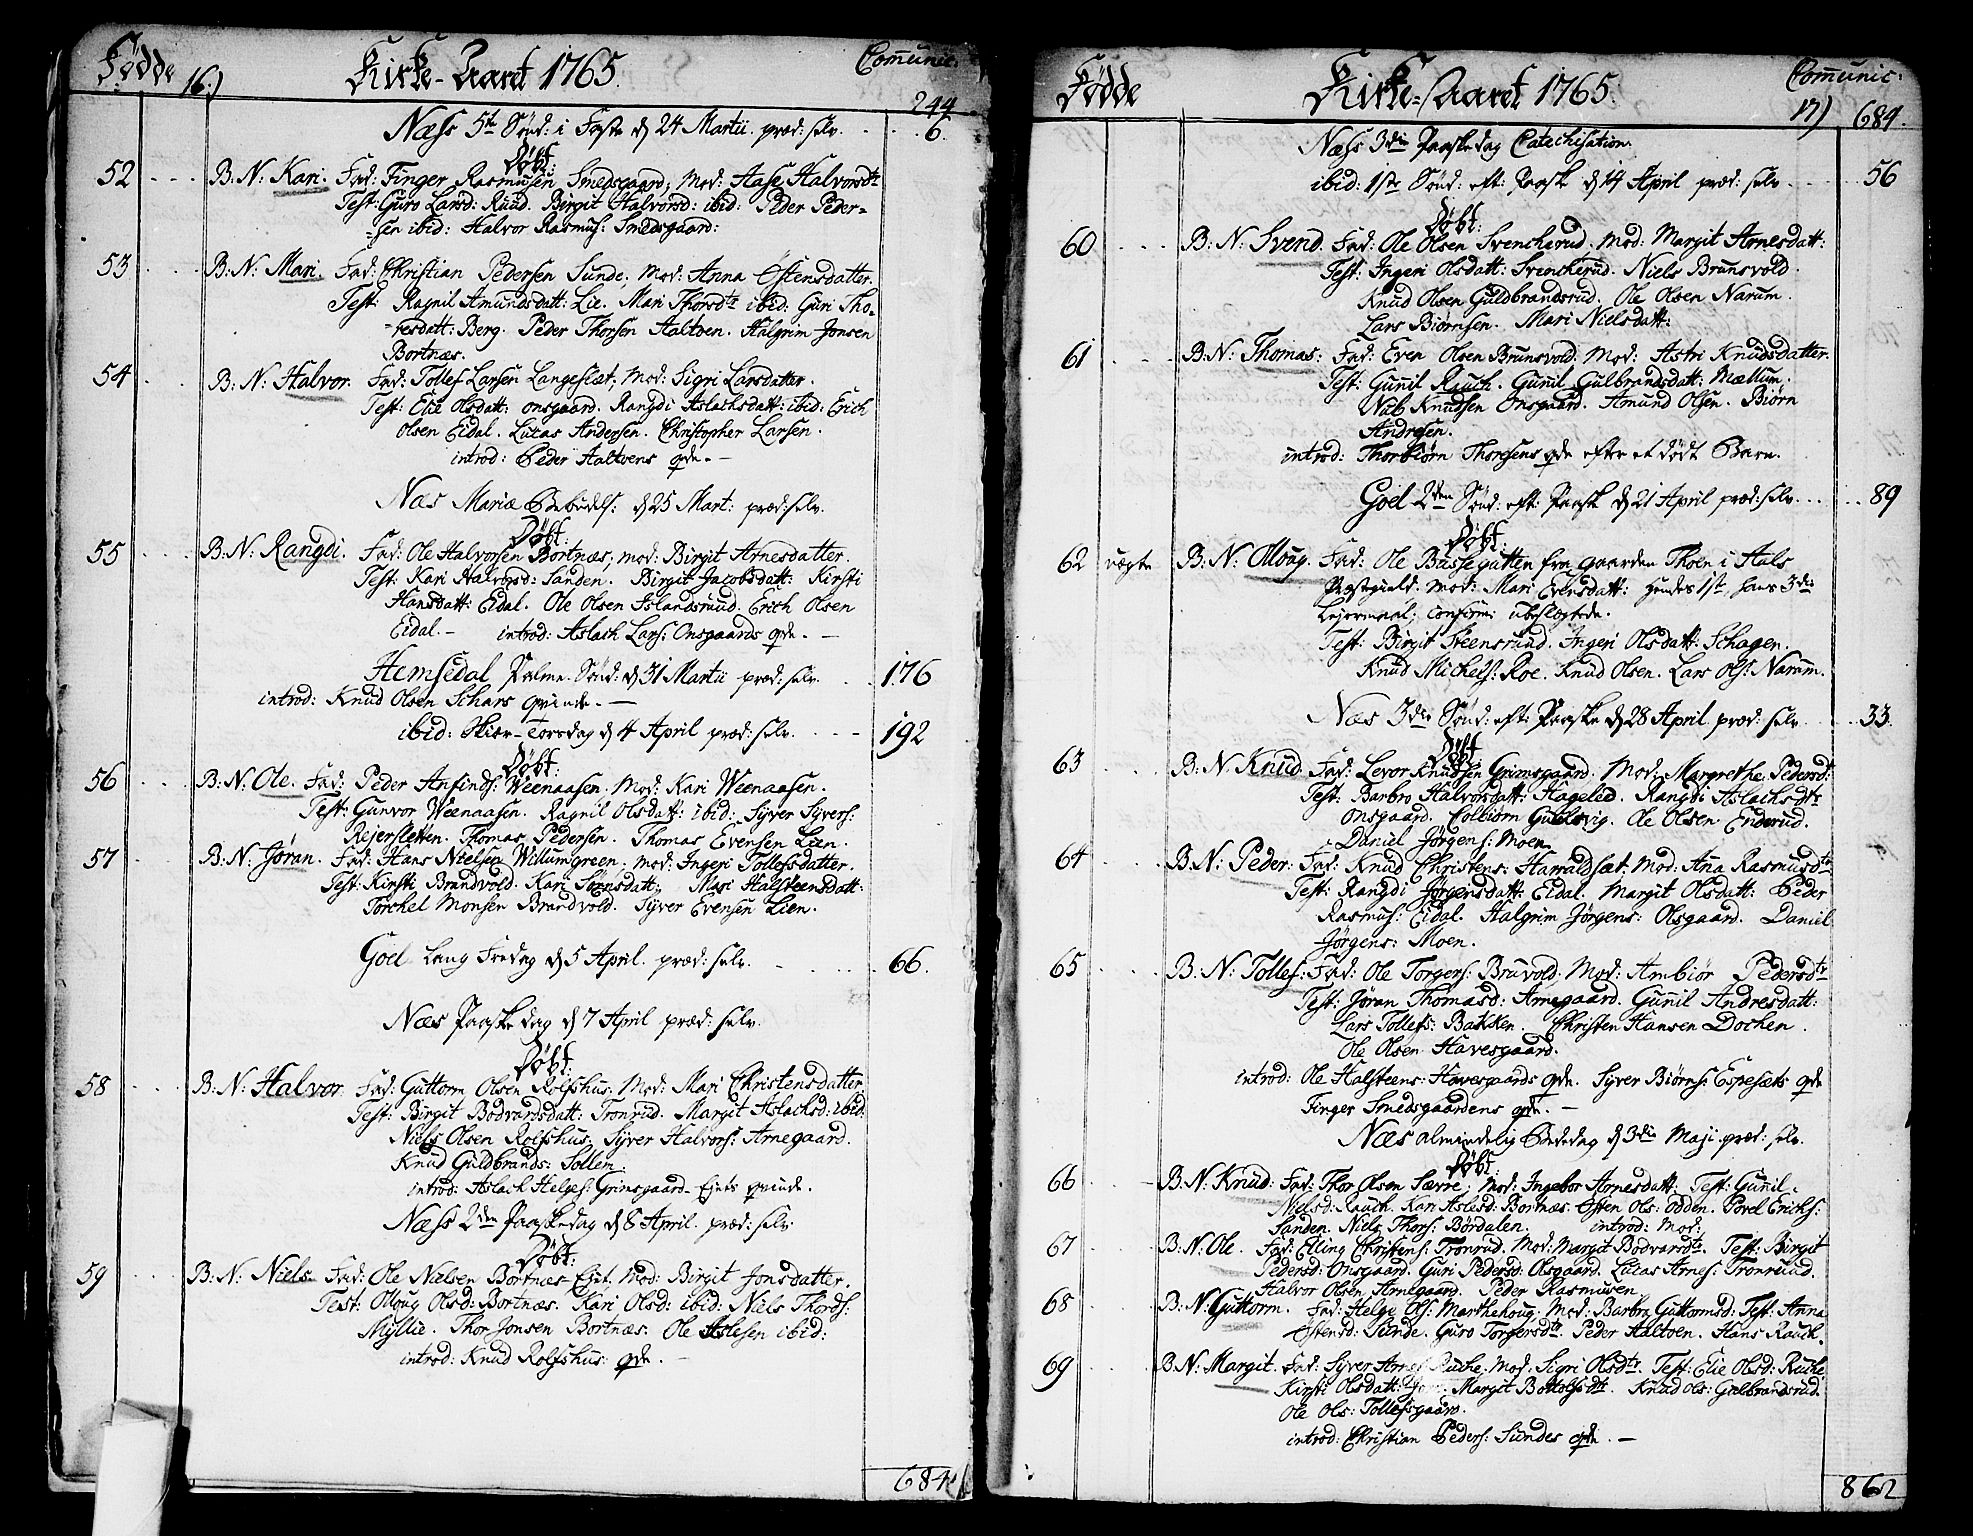 Fødde 16) Kirke-Aaret 1765. Comunic:
244
Næss 5te Sønd: i Faste d 24 Martii præd: selv. 6.
Døbt:
52 B: N: Kari. Fad: Finger Rasmusen Smedsgaard; Mod: Aase Halvorsdtr
Test: Guro Larsd: Ruud. Birgit Halvorsd: ibid: Peder Peder=
=sen ibid: Halvor Rasmus: Smedsgaard:
53 B: N: Mari. Fad: Christian Pedersen Sunde; Mod: Anna Østensdatter.
Test: Ragnil Amundsdatt: Lie. Mari Thorsdtr ibid: Guri Tho-
-resdatt: Berg. Peder Thorsen Aaltoen. Halgrim Jonsen
Bortnæs.
54 B: N: Halvor. Fad: Tollef Larsen Langesæt; Mod: Sigri Larsdatter.
Test: Elie Olsdatt: Onsgaard. Rangdi Aslachsdatt: ibid: Erich
Olsen Eidal. Lucas Andersen. Christopher Larsen.
introd: Peder Aaltoens qde. -
Næs Mariæ Bebudels: d 25 Mart: præd: selv.
Døbt:
55 B: N: Rangdi. Fad: Ole Halvorsen Bortnæs; mod: Birgit Arnesdatter.
Test: Kari Halvorsd: Sanden. Birgit Jacobsdatt: Kirsti
Hansdatt: Eidal. Ole Olsen Islandsruud. Erich Olsen
Eidal. - introd: Aslach Lars: Onsgaards qde. -
Hemsedal Palme Sønd: d 31 Martii præd: selv. 176
introd: Knud Olsen Schars qvinde. -
ibid: Skiær-Torsdag d 4 April præd: selv. 192
Døbt:
56 B: N: Ole. Fad: Peder Anfinds: Weenaasen. Mod: Kari Weenaasen.
Test: Gunvor Weenaasen. Ragnil Olsdatt: ibid: Syver Syvers:
Rejersletten. Thomas Pedersen. Thomas Evensen Lien.
57 B: N: Jøran. Fad: Hans Nielsen Willumgreen. mod: Ingeri Tollefsdatter.
Test: Kirsti Brandvold. Kari Sørensdatt; Mari Halsteensdatt:
Torchel Monsen Brandvold. Syver Evensen Lien.
Goel Lang Fredag d 5 April. præd: selv. 66.
Næs Paaske dag d 7 April præd: selv.
Døbt:
58 B: N: Halvor. Fad: Guttorm Olsen Rolfshus; Mod: Mari Christensdatter
Test: Birgit Bodvardsdatt: Tronrud. Margit Aslachsd: ibid:
Niels Olsen Rolfshus. Syver Halvors: Arnegaard.
Knud Guldbrands: Sollem.
introd: Aslach Helges: Grimsgaard-Ejets qvinde.
Næss 2den Paaskedag d 8 April. præd: selv
Døbt:
59 B: N: Niels. Fad: Ole Nielsen Bortnæs Ejet. Mod: Birgit Jonsdatter.
Test: Olloug Olsd: Bortnæs. Kari Olsd: ibid: Niels Thords:
Myllie. Thor Jonsen Bortnæs. Ole Aslesen ibid:
introd: Knud Rolfshus: qde. -
684
Fødde Kirke-Aaret 1765. Comunic:
17) 684.
Næss 3die Paaskedag Catechisation.
ibid: 1ste Sønd: eft: Paask d 14 April præd: selv 56
Døbt:
60 B: N: Svend. Fad: Ole Olsen Svencherud. mod: Margit Arnesdatt:
Test: Ingeri Olsdatt: Svencherud. Niels Brunsvold.
Knud Olsen Guldbrandsrud. Ole Olsen Narum.
Lars Biørnsen. Mari Nielsdatt:
61 B: N: Thomas: Fad: Even Olsen Brunsvold. Mod: Astri Knudsdatter.
Test: Gunil Rauch. Gunil Gulbrandsdatt: Mællum.
Nub Knudsen Onsgaard. Amund Olsen. Biørn
Andresen.
introd: Thorbiørn Thoresens qde efter et dødt Barn.
Goel 2den Sønd: eft: Paask d 21 April præd: selv. 89
Døbt:
62 uægte B: N: Olloug. Fad: Ole Bussegutten fra gaarden Thoen i Aals
Præstegield. mod: Mari Evensdatt: hendes 1ste, hans 3die
Lejermaal; Confirm: ubeslægtede.
Test: Birgit Steensrund. Ingeri Olsdatt: Schagen.
Knud Michels: Roe. Knud Olsen. Lars Ols: Narum.
Næs 3die Sønd: eft: Paaske d 28 April præd: selv 33.
Døbt
63 B: N: Knud. Fad: Levor Knudsen Grimsgaard. Mod: Margrethe Pedersd:
Test: Barbro Halvorsdatt: Hageled. Rangdi Aslachsdtr
Onsgaard. Colbiørn Guldsvig. Ole Olsen Enderud.
Daniel Jørgens: Moen.
64 B: N: Peder. Fad: Knud Christens: Harraldsæt. Mod: Ana Rasmusdtr
Test: Rangdi Jørgensdatt: Eidal. Margit Olsdatt: Peder
Rasmus: Eidal. Halgrim Jørgens: Olsgaard. Daniel
Jørgens: Moen.
65 B: N: Tollef: Fad: Ole Torgers: Bruvold. Mod: Ambiør Pedersdtr
Test: Jøran Thomasd: Arnegaard. Gunil Andresdatt:
Lars Tollefs: Bakken. Christen Hansen Dochen.
Ole Olsen Havesgaard.
introd: Ole Halsteens: Havesgaards qde. Syver Biørns: Espesæts qde
Finger Smedsgaardens qde. -
Næs almindelig Bededag d 3die Maji. præd: selv.
Døbt:
66 B: N: Knud. Fad: Thor Olsen Særre; Mod: Ingebor Arnesdatt: Test: Gunil
Nielsd: Rauch. Kari Aslesd: Bortnæs. Østen Ols: Odden. Povel Erichs:
Sanden. Niels Thors: Børdalen. introd: Mod:
67 B: N: Ole. Fad: Elling Christens: Tronrud. Mod: Margit Bodvarsdtr. Test: Birgit
Pedersd: Onsgaard. Guri Pedersd: Olsgaard. Lucas Arnes: Tronruud.
Halvor Olsen Arnegaard. Peder Rasmusen
68 B: N: Guttorm. Fad: Helge Ols: Marthehoug; Mod: Barbro Guttormsd: Test: Anna
Østensd: Sunde. Guro Torgersdtr. Peder Aaltoen. Hans Rauch.
69 B: N: Margit. Fad: Syver Arnes: Ruche; Mod: Sigri Olsdtr. Test: Elie Olsd: Ruche
Kirsti Olsdatt: Margit Bottolfsdtr. Knud Ols: Gulbrandsrud.
Ole Ols: Tollefsgaard.
introd: Christian Peders: Sundes qde. -
862